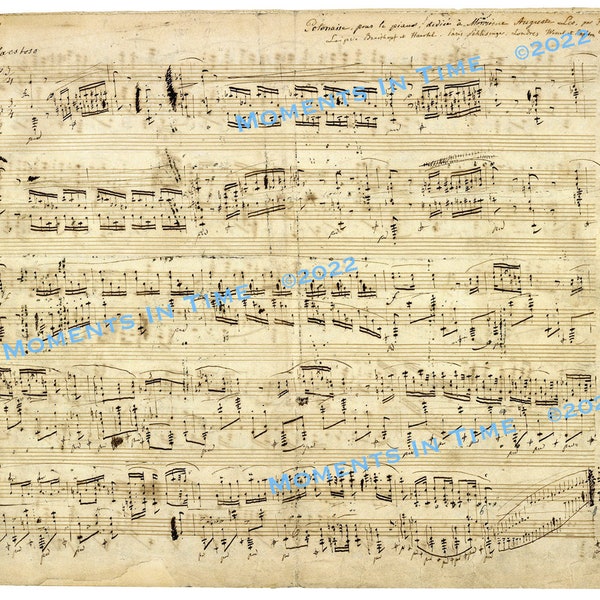 Polonaise pour le piano, dediée à Monsieur Auguste Leo, par F
Leipzig Breitkopf et Härtel. Paris Schlesinger. Londres
©2022
Moments In Time
aestoso
©2022
Moments In Time
©2022
Moments In Time